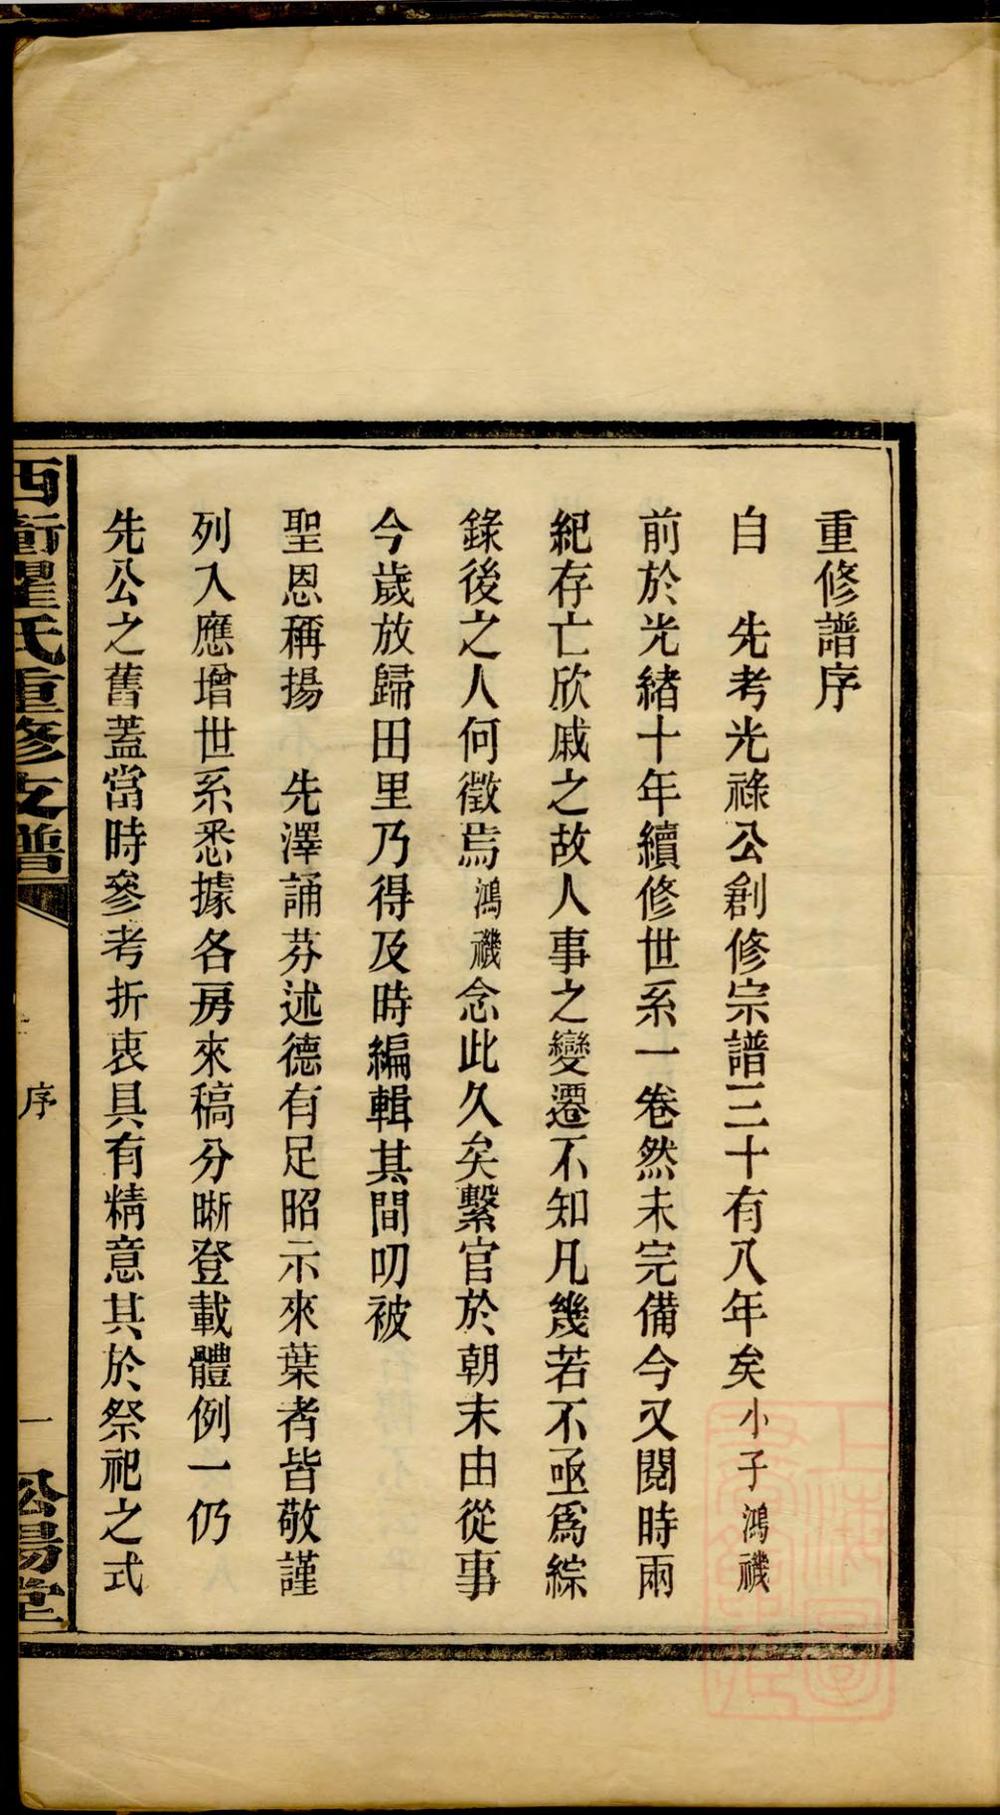 重修譜序
自　先考光祿公創修宗譜三十有八年矣小子鴻禨
前於光緒十年續修世系一卷然未完備今又閱時兩
紀存亡欣戚之故人事之變遷不知凡幾若不亟爲綜
錄後之人何徵焉鴻禨念此久矣繫官於朝末由從事
今歲放歸田里乃得及時編輯其間叨被
聖恩稱揚　先澤誦芬述德有足昭示來葉者皆敬謹
列入應增世系悉據各房來稿分晰登載體例一仍
先公之舊蓋當時參考折衷具有精意其於祭祀之式
西衝瞿氏重修支譜
序
一
松陽堂
上海圖書館藏